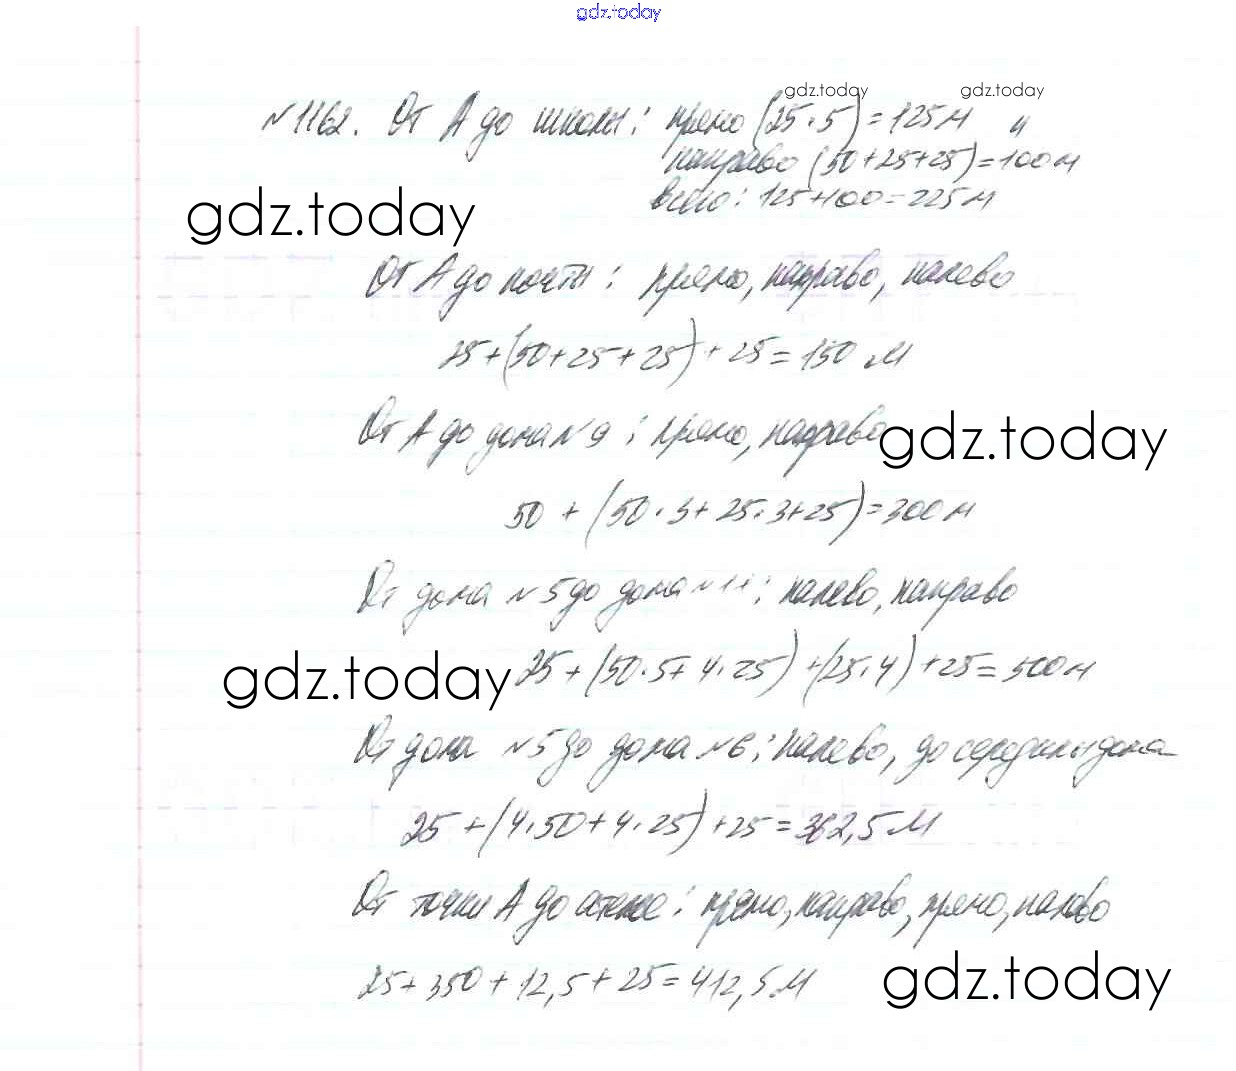 gdz.today
gdz.today gdz.today
№1162. От А до школы: прямо (25·5)=125м и
направо (50+25+25)=100м
всего: 125+100=225м
gdz.today
От А до почты: прямо, направо, налево
25+(50+25+25)+25=150 м
От А до дома №9: прямо, направо
gdz.today
50+(50·3+25·3+25)=300м
От дома №5 до дома №11: налево, направо
gdz.today
25+(50·5+4·25)+(25·4)+25=500м
От дома №5 до дома №6: налево, до середины дома
25+(4·50+4·25)+25=362,5 м
От точки А до : прямо, направо, прямо, налево
25+350+12,5+25=412,5 м
gdz.today